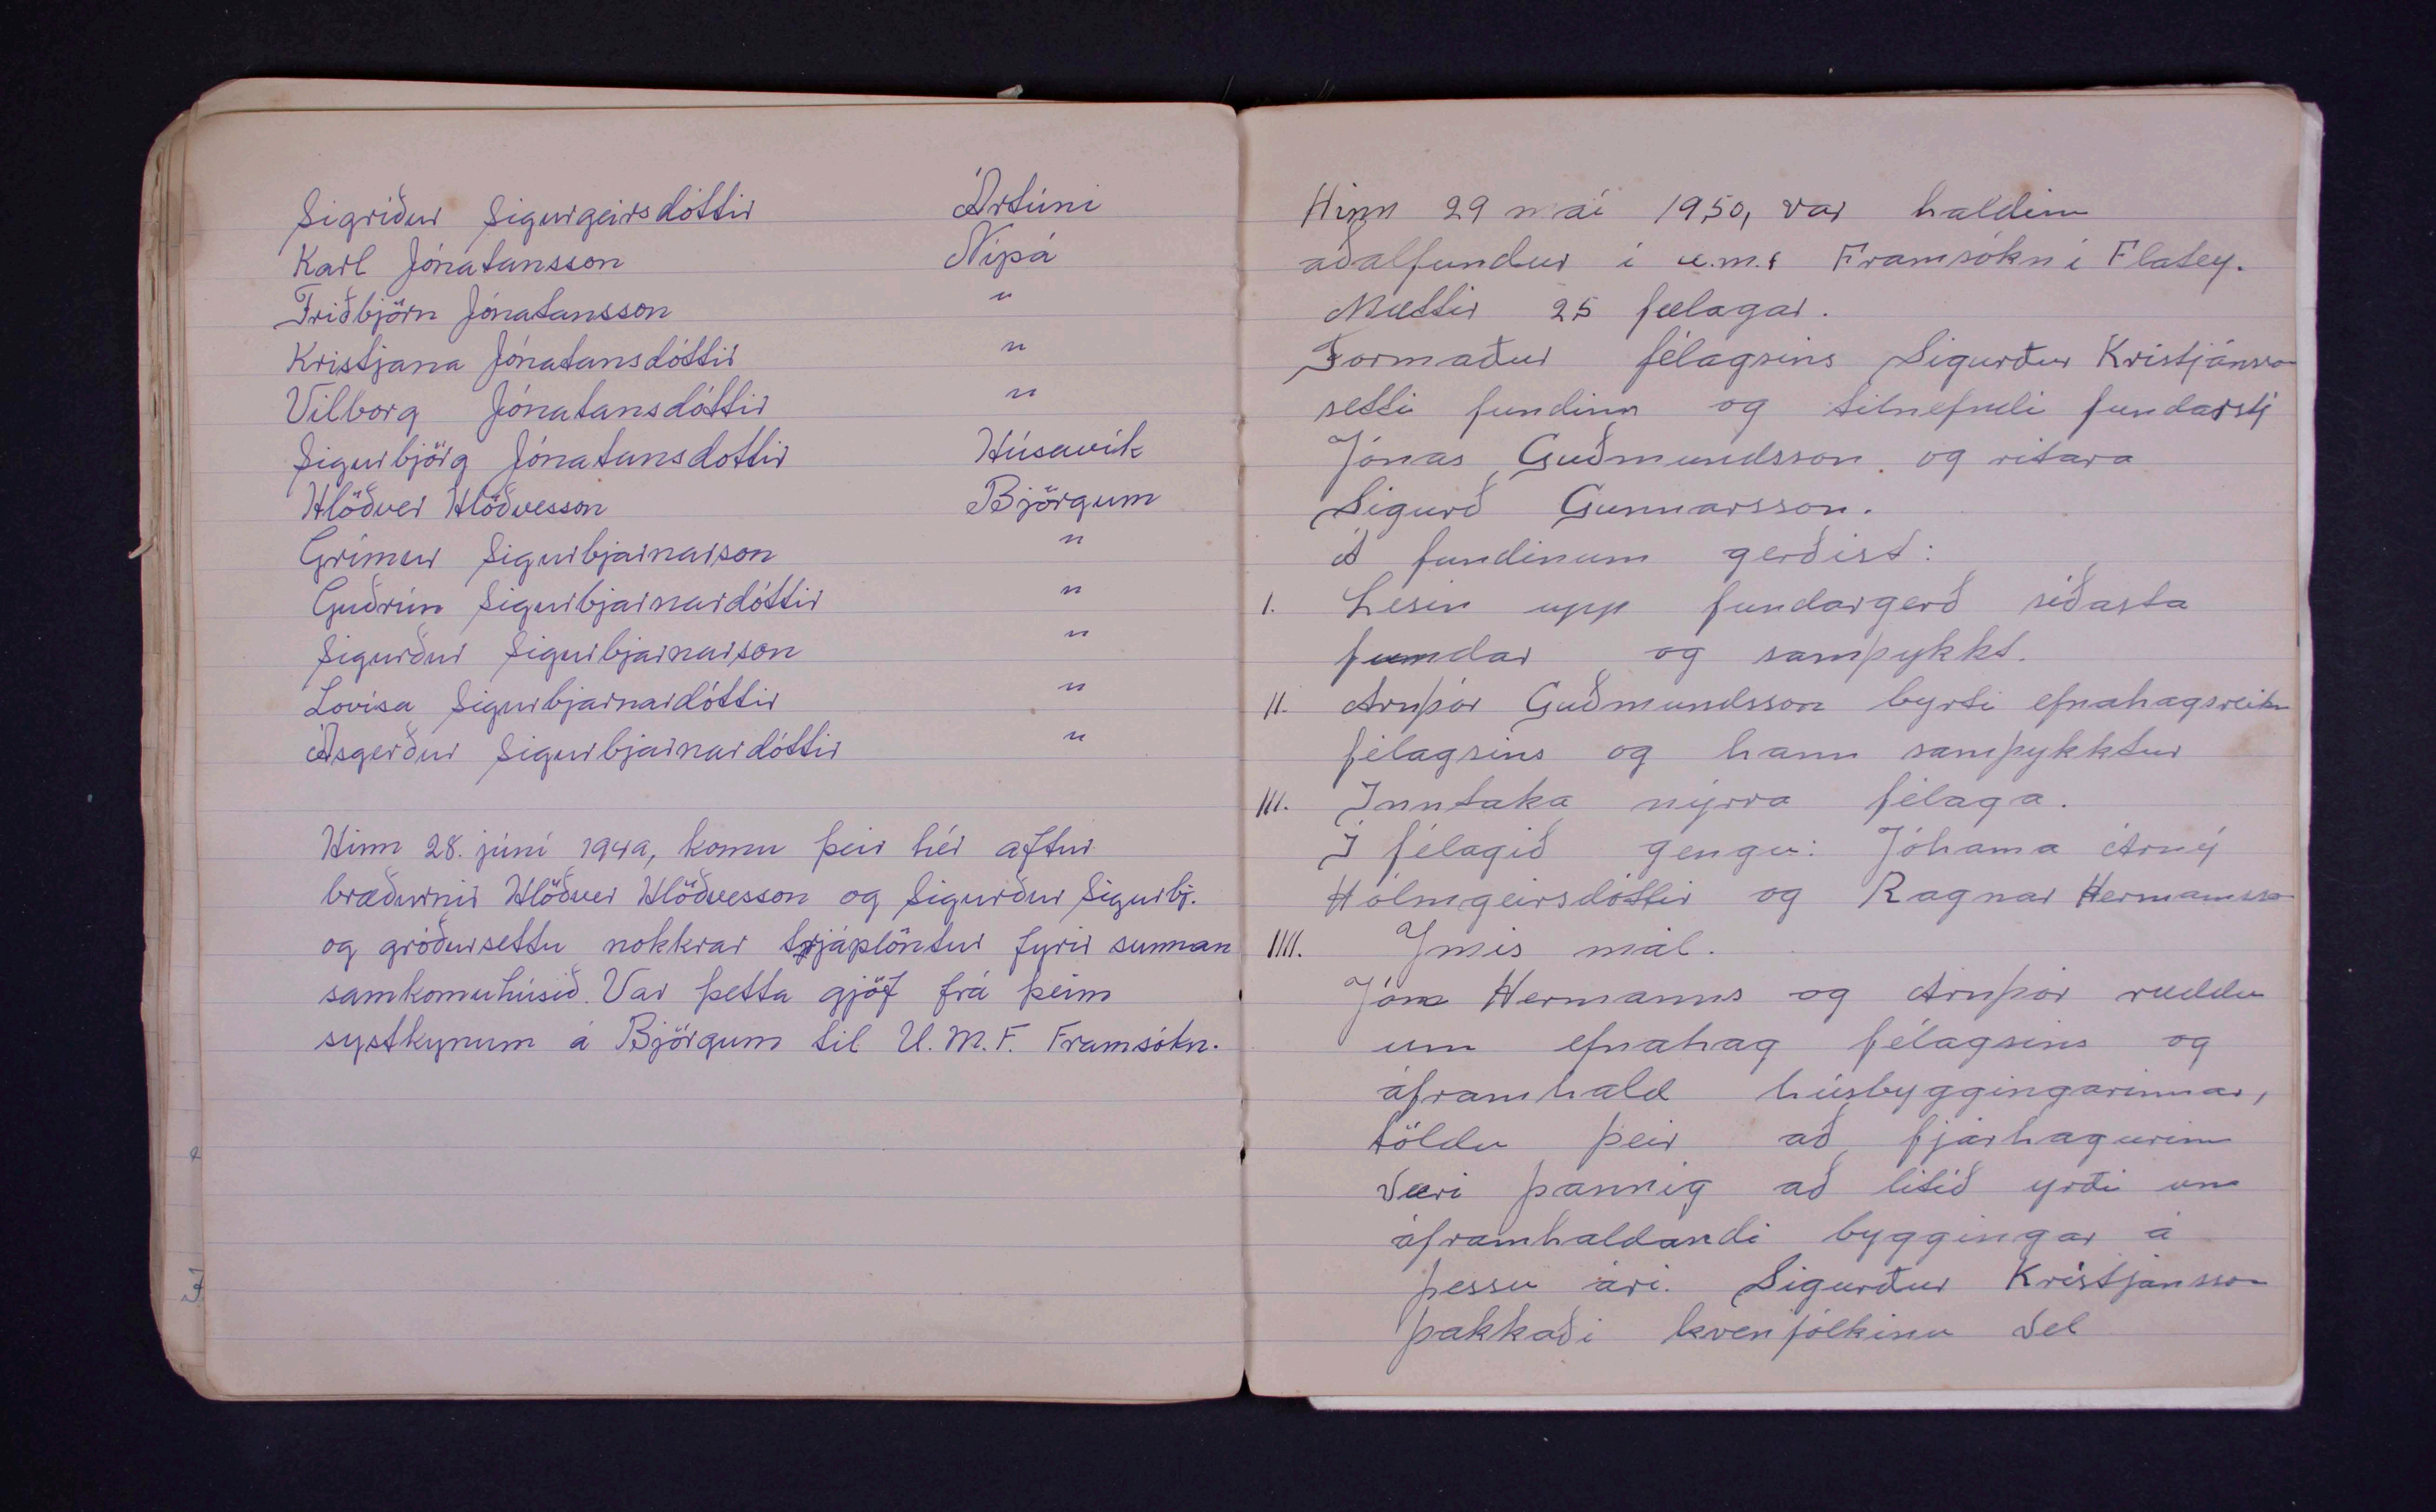 Sigríður Sigurgeirsdóttir Ártúni
Karl Jónatansson Nípá
Friðbjörn Jónatansson "
Kristjana Jónatansdóttir "
Vilborg Jónatansdóttir "
Sigurbjörg Jónatansdottir Húsavík
Hlöðver Hlöðvesson Björgum
Grímur Sigurbjarnarson "
Guðrún Sigurbjarnardóttir "
Sigurður Sigurbjarnarson "
Lovísa Sigurbjarnardóttir "
Ásgerður Sigurbjarnardóttir "
Hinn 28. júní 1949, komu þeir hér aftur
bræðurnir Hlöðver Hlöðvesson og Sigurður Sigurbj.
og gróðursettu nokkrar trjáplöntur fyrir sunnan
samkomuhúsið. Var þetta gjöf frá þeim
systkynum á Björgum til U.M.F. Framsókn.
Hinn 29 maí 1950, var haldinn
aðalfundur í u.m.f Framsókn í Flatey.
Mættir 25 fælagar.
Formaður félagsins Sigurður Kristjánsson
setti fundinn og tilnefndi fundarstj
Jónas Guðmundsson og ritara
Sigurð Gunnarsson.
Á fundinum gerðist:
I. Lesin upp fundargerð síðasta
fundar og samþykkt.
II. Arnþór Guðmundsson byrti efnahagsreikn
félagsins og hann samþykktur
III. Inntaka nýrra félaga.
Í félagið gengu: Jóhanna Árný
Hólmgeirsdóttir og Ragnar Hermannsson
IIII. Ýmis mál.
Jón Hermanns og Arnþór ræddu
um efnahag félagsins og
áframhald húsbyggingarinnar,
töldu þeir að fjárhagurinn
væri þannig að lítið yrði um
áframhaldandi byggingar á
þessu ári. Sigurður Kristjánsson
þakkaði kvenfólkinu vel